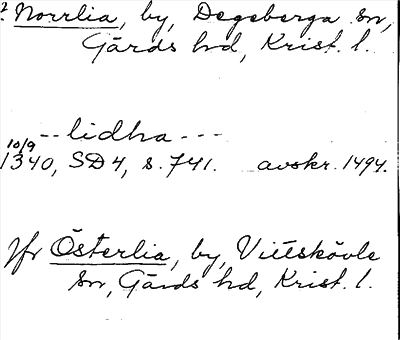 ? Norrlia, by, Degeberga sn,
Gärds hd, Krist. l.
-- lidha ---
10/9
1340, SD4, s. 741. avskr. 1494.
Jfr Österlia, by, Vittskövle
sn, Gärds hd, Krist. l.